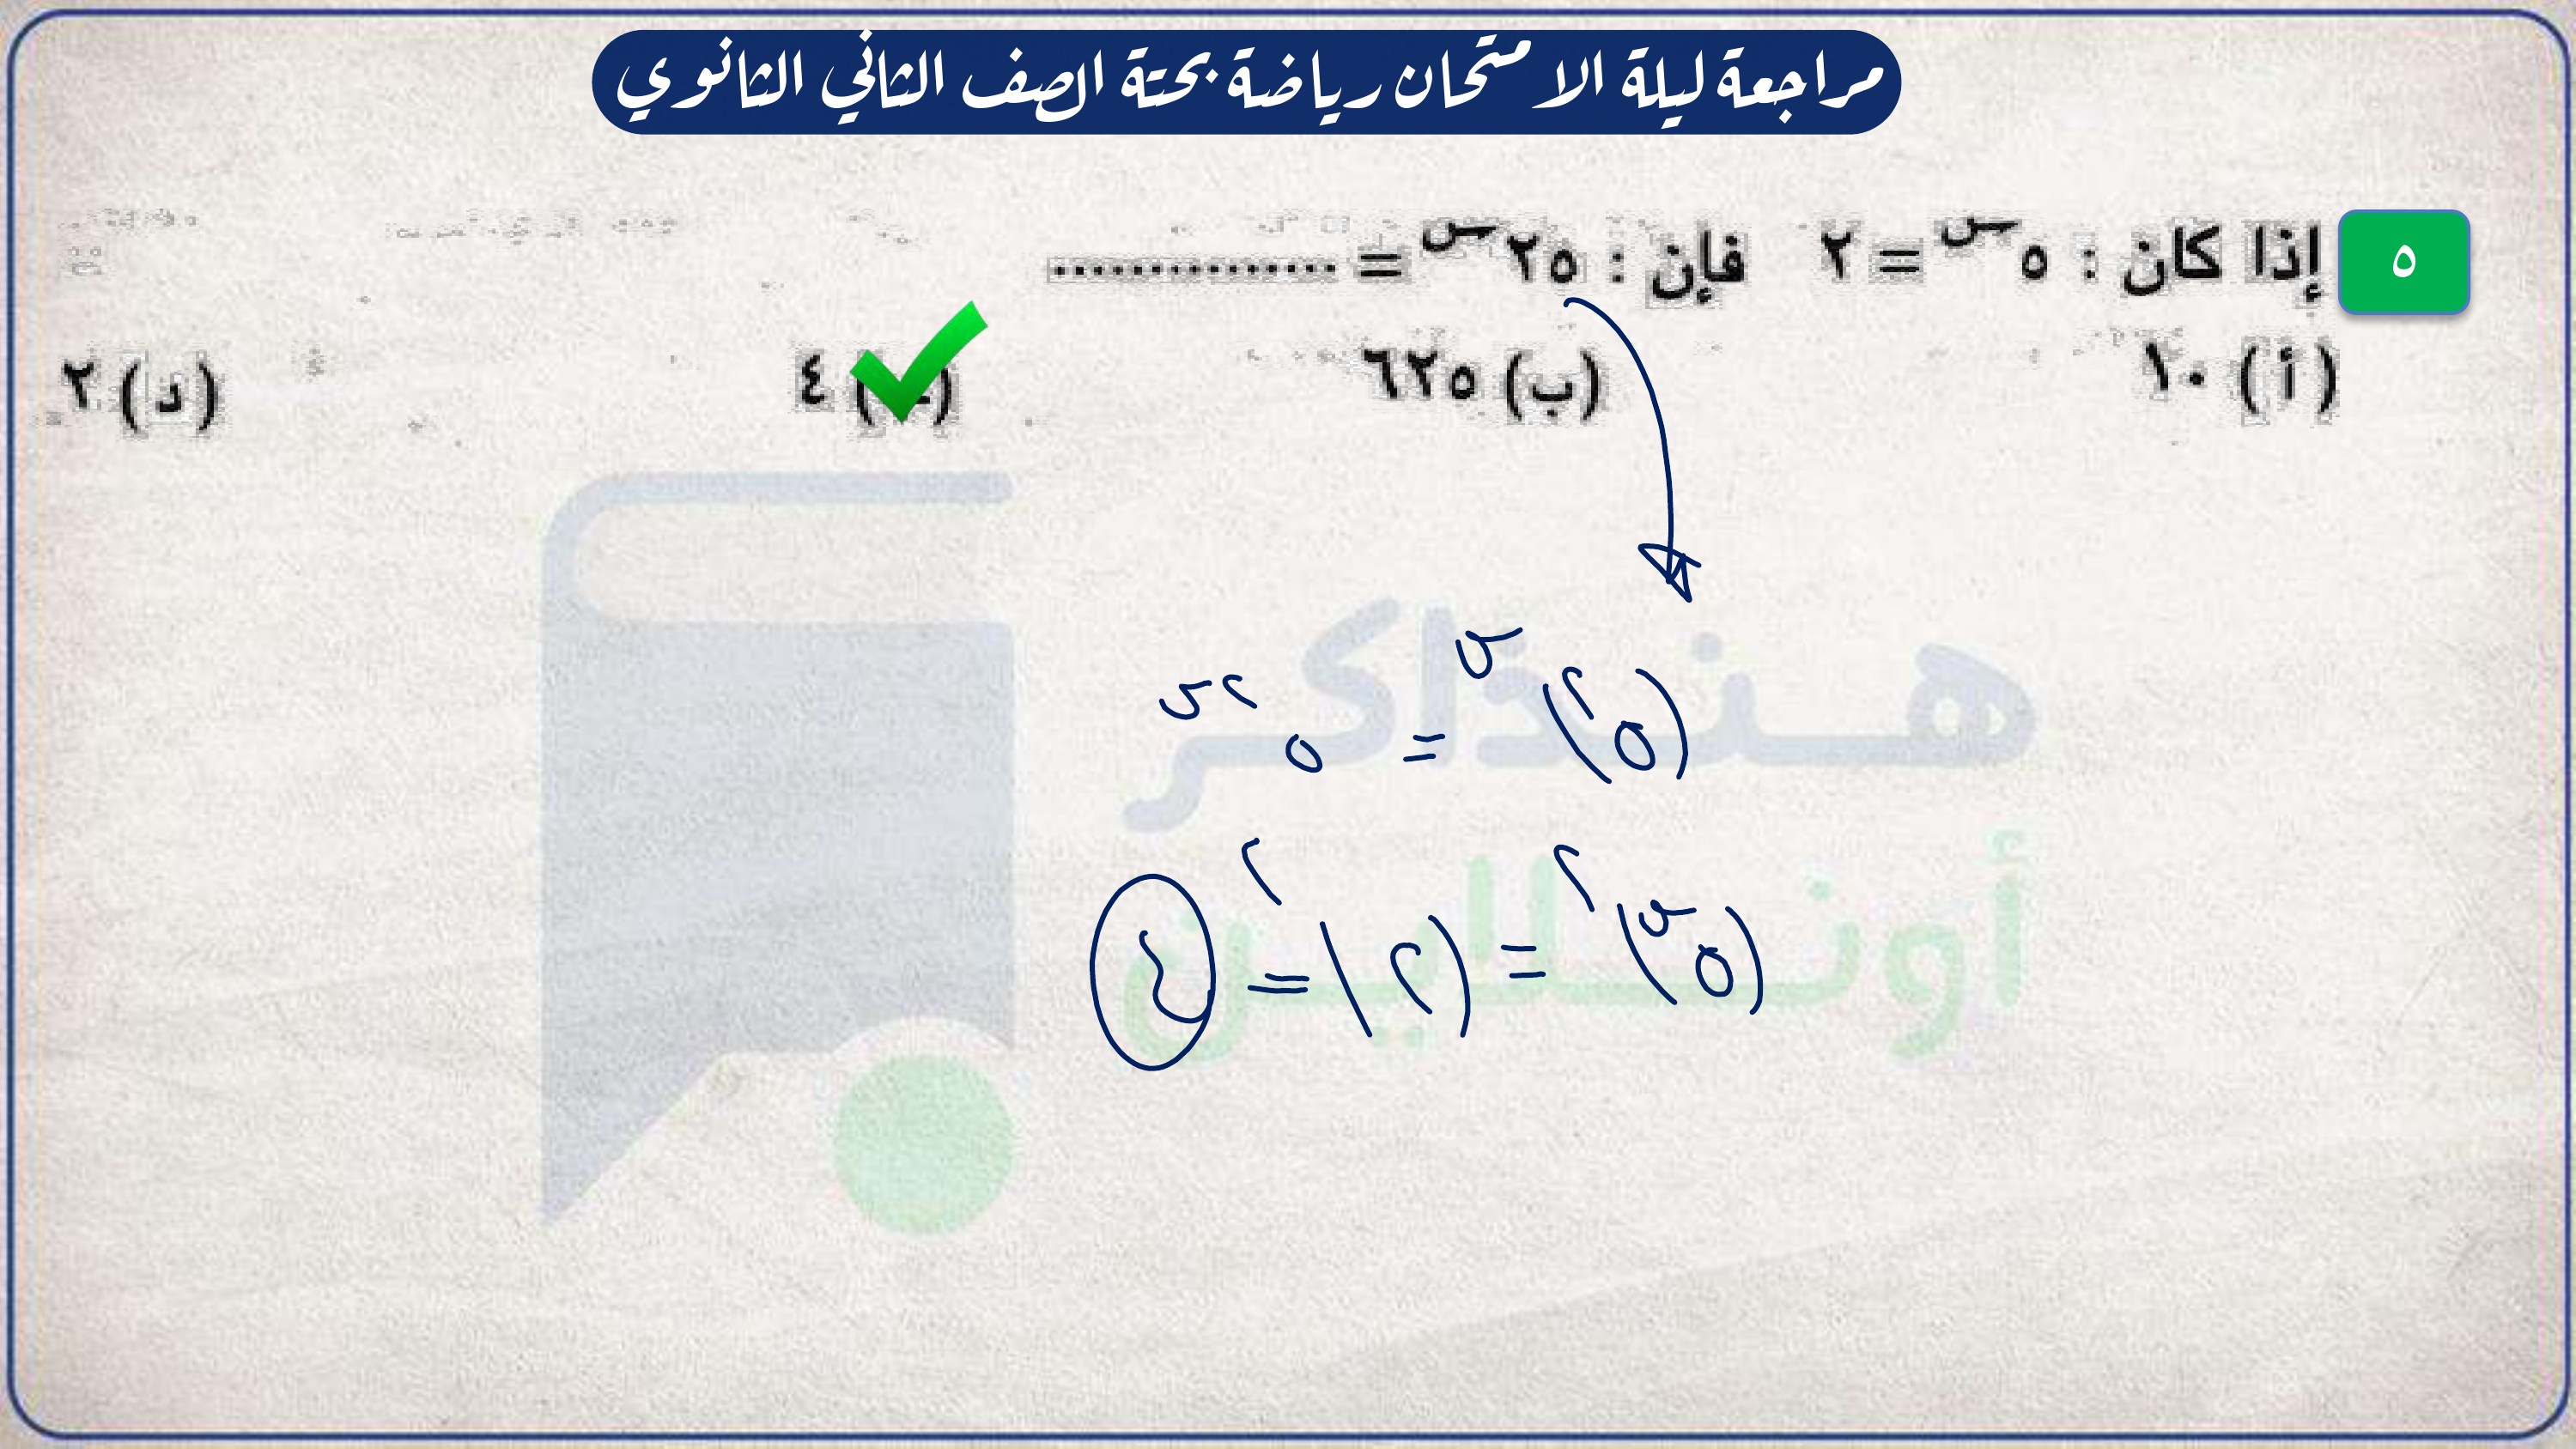 مراجعة ليلة الامتحان رياضة بحتة الصف الثاني الثانوي
٥ إذا كان : ٥^س = ٢ فإن : ٢٥^س = ...............
(أ) ١٠ (ب) ٦٢٥ (جـ) ٤ (د) ٢
(٥^٢)^س = ٥^٢س
(٥^س)^٢ = (٢)^٢ = ٤
هنذاكر
أونلاين